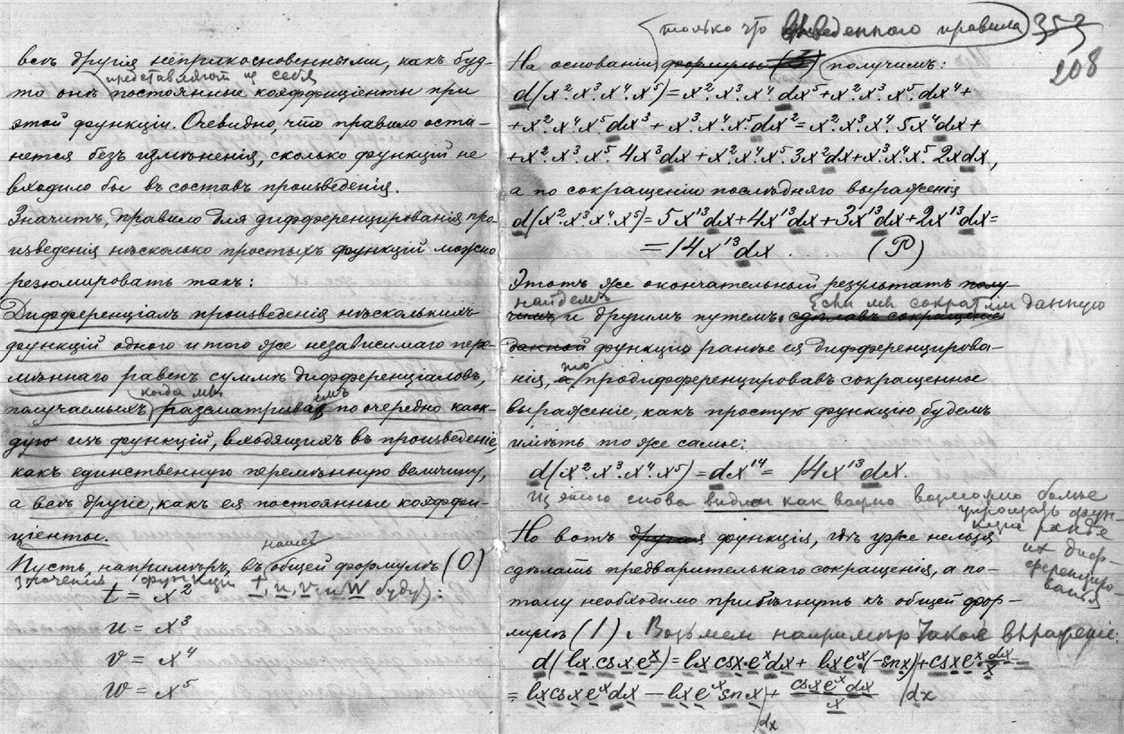 всѣ другія неприкосновенными, какъ буд-
представляют из себя
то онѣ постоянные коэффиціенты при
этой функціи. Очевидно, что правило оста-
нется безъ измѣненія, сколько функцій не
входило бы въ составъ произведенія.
Значитъ, правило для дифференцированія про-
изведенія нѣсколько простыхъ функцій можно
резюмировать такъ:
Дифференціалъ произведенія нѣсколькихъ
функцій одного и того же независимаго пере-
мѣннаго равенъ суммѣ дифференціаловъ,
когда мы
получаемыхъ разсматриваемъ по очередно каж-
дую изъ функцій, входящихъ въ произведеніе,
какъ единственную перемѣнную величину,
а всѣ другіе, какъ ея постоянные коэффи-
ціенты.
нашей
Пусть, напримѣръ, въ общей формулѣ (O)
значения функций t, u, v и w будут:
t = x²
u = x³
v = x⁴
w = x⁵
только что выведенного правила 353
208
На основаніи формулы (3) получимъ:
d(x².x³.x⁴.x⁵)=x².x³.x⁴dx⁵+x².x³.x⁵dx⁴+
+x².x⁴.x⁵dx³+x³.x⁴.x⁵dx²=x².x³.x⁴.5x⁴dx+
+x².x³.x⁵.4x³dx+x².x⁴.x⁵.3x²dx+x³.x⁴.x⁵2xdx,
а по сокращеніи послѣдняго выраженія
d(x².x³.x⁴.x⁵)=5x¹³dx+4x¹³dx+3x¹³dx+2x¹³dx=
=14x¹³dx ...... (P)
Этотъ же окончательный результатъ полу-
найдемъ Если мы сократим данную
чимъ и другимъ путемъ, сдѣлавъ сокращеніе
данной функцію ранѣе ея дифференцирова-
нія, а то продифференцировавъ сокращенное
выраженіе, какъ простую функцію, будемъ
имѣть то же самое:
d(x².x³.x⁴.x⁵)=dx¹⁴= 14x¹³dx.
Из этого снова видим как важно возможно более
упрощать фун-
кции ранѣе
их диф-
ференциро-
вания
Но вотъ другая функція, гдѣ уже нельзя
сдѣлать предварительнаго сокращенія, а по-
тому необходимо прибѣгнуть къ общей фор-
мулѣ (1). Возьмем напримѣръ такое выражение:
d(lx.csx.eˣ)=lx csx.eˣdx+ lxeˣ.(-snx)+csxeˣ.dx/x=
=lxcsxeˣdx - lxeˣsnx + csxeˣdx/x dx
dx